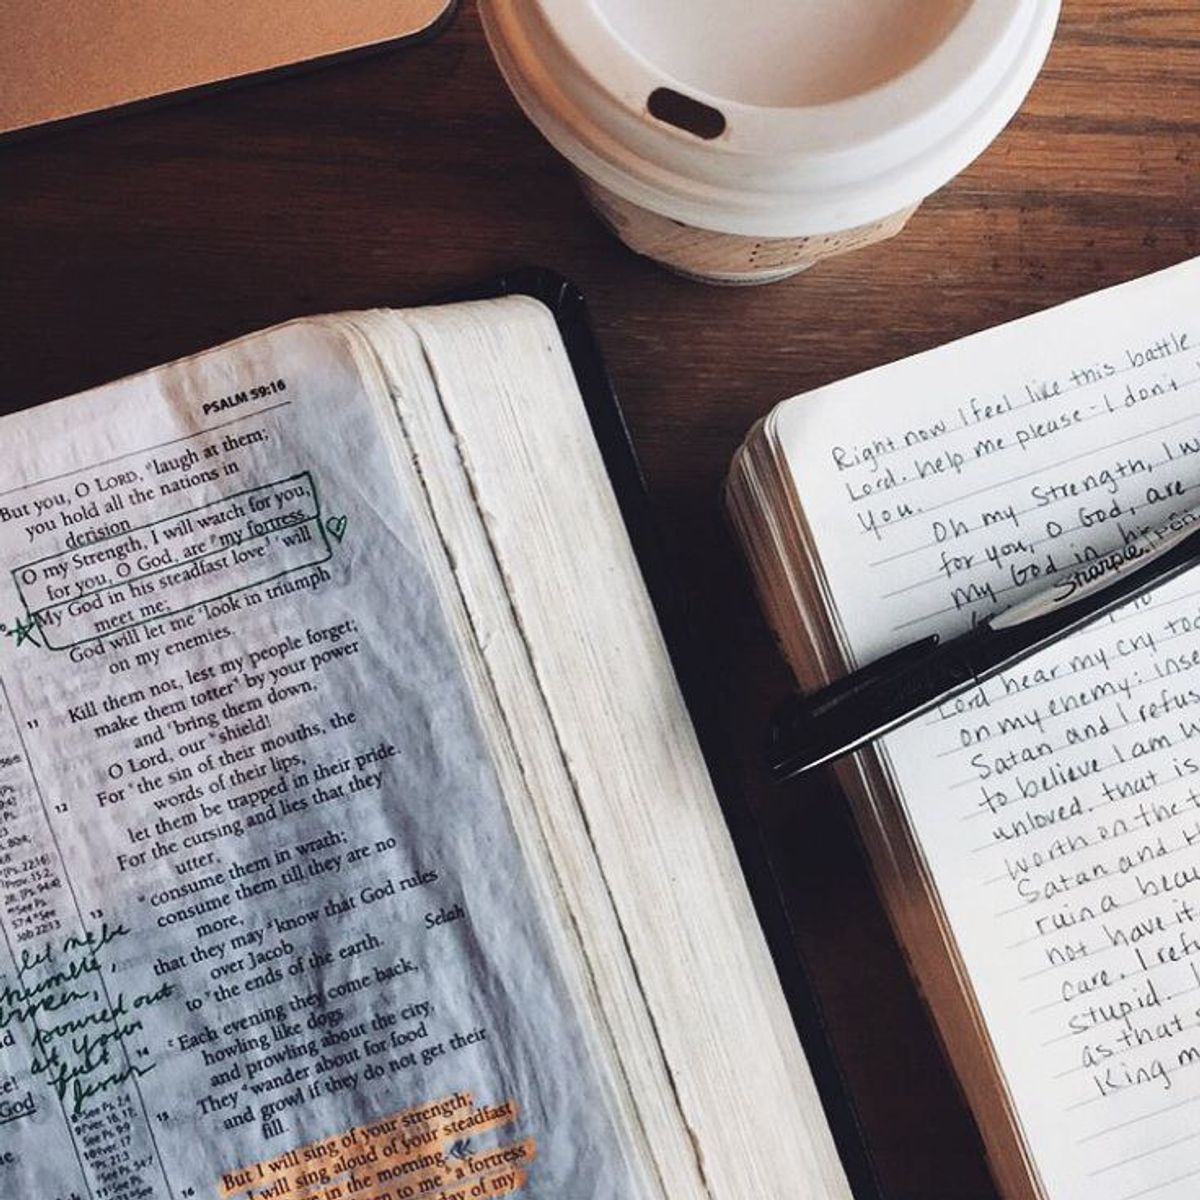 PSALM 59:16
But you, O LORD, laugh at them;
you hold all the nations in
derision.
O my Strength, I will watch for you,
for you, O God, are my fortress.
My God in his steadfast love will
meet me;
God will let me look in triumph
on my enemies.
11 Kill them not, lest my people forget;
make them totter by your power
and bring them down,
O Lord, our shield!
12 For the sin of their mouths, the
words of their lips,
let them be trapped in their pride.
For the cursing and lies that they
utter,
13 consume them in wrath;
consume them till they are no
more,
that they may know that God rules
over Jacob
to the ends of the earth. Selah
14 Each evening they come back,
howling like dogs
and prowling about the city.
15 They wander about for food
and growl if they do not get their
fill.
16 But I will sing of your strength;
I will sing aloud of your steadfast
in the morning.
to me a fortress
day of my
let me be
humble,
poured out
at your
feet
See Ps. 2:4
See Ps. 9:9
ver. 17
Job 22:13
God
Right now I feel like this battle
Lord. help me please - I don't
you.
Oh my Strength, I w
for you, O God, are
My God in his
Sharpie. Pen
Lord hear my cry too
on my enemy: inse
Satan and I refus
to believe I am w
unloved. that is
worth on the t
Satan and h
ruin a beau
not have it
care. I ref
stupid.
as that
King m